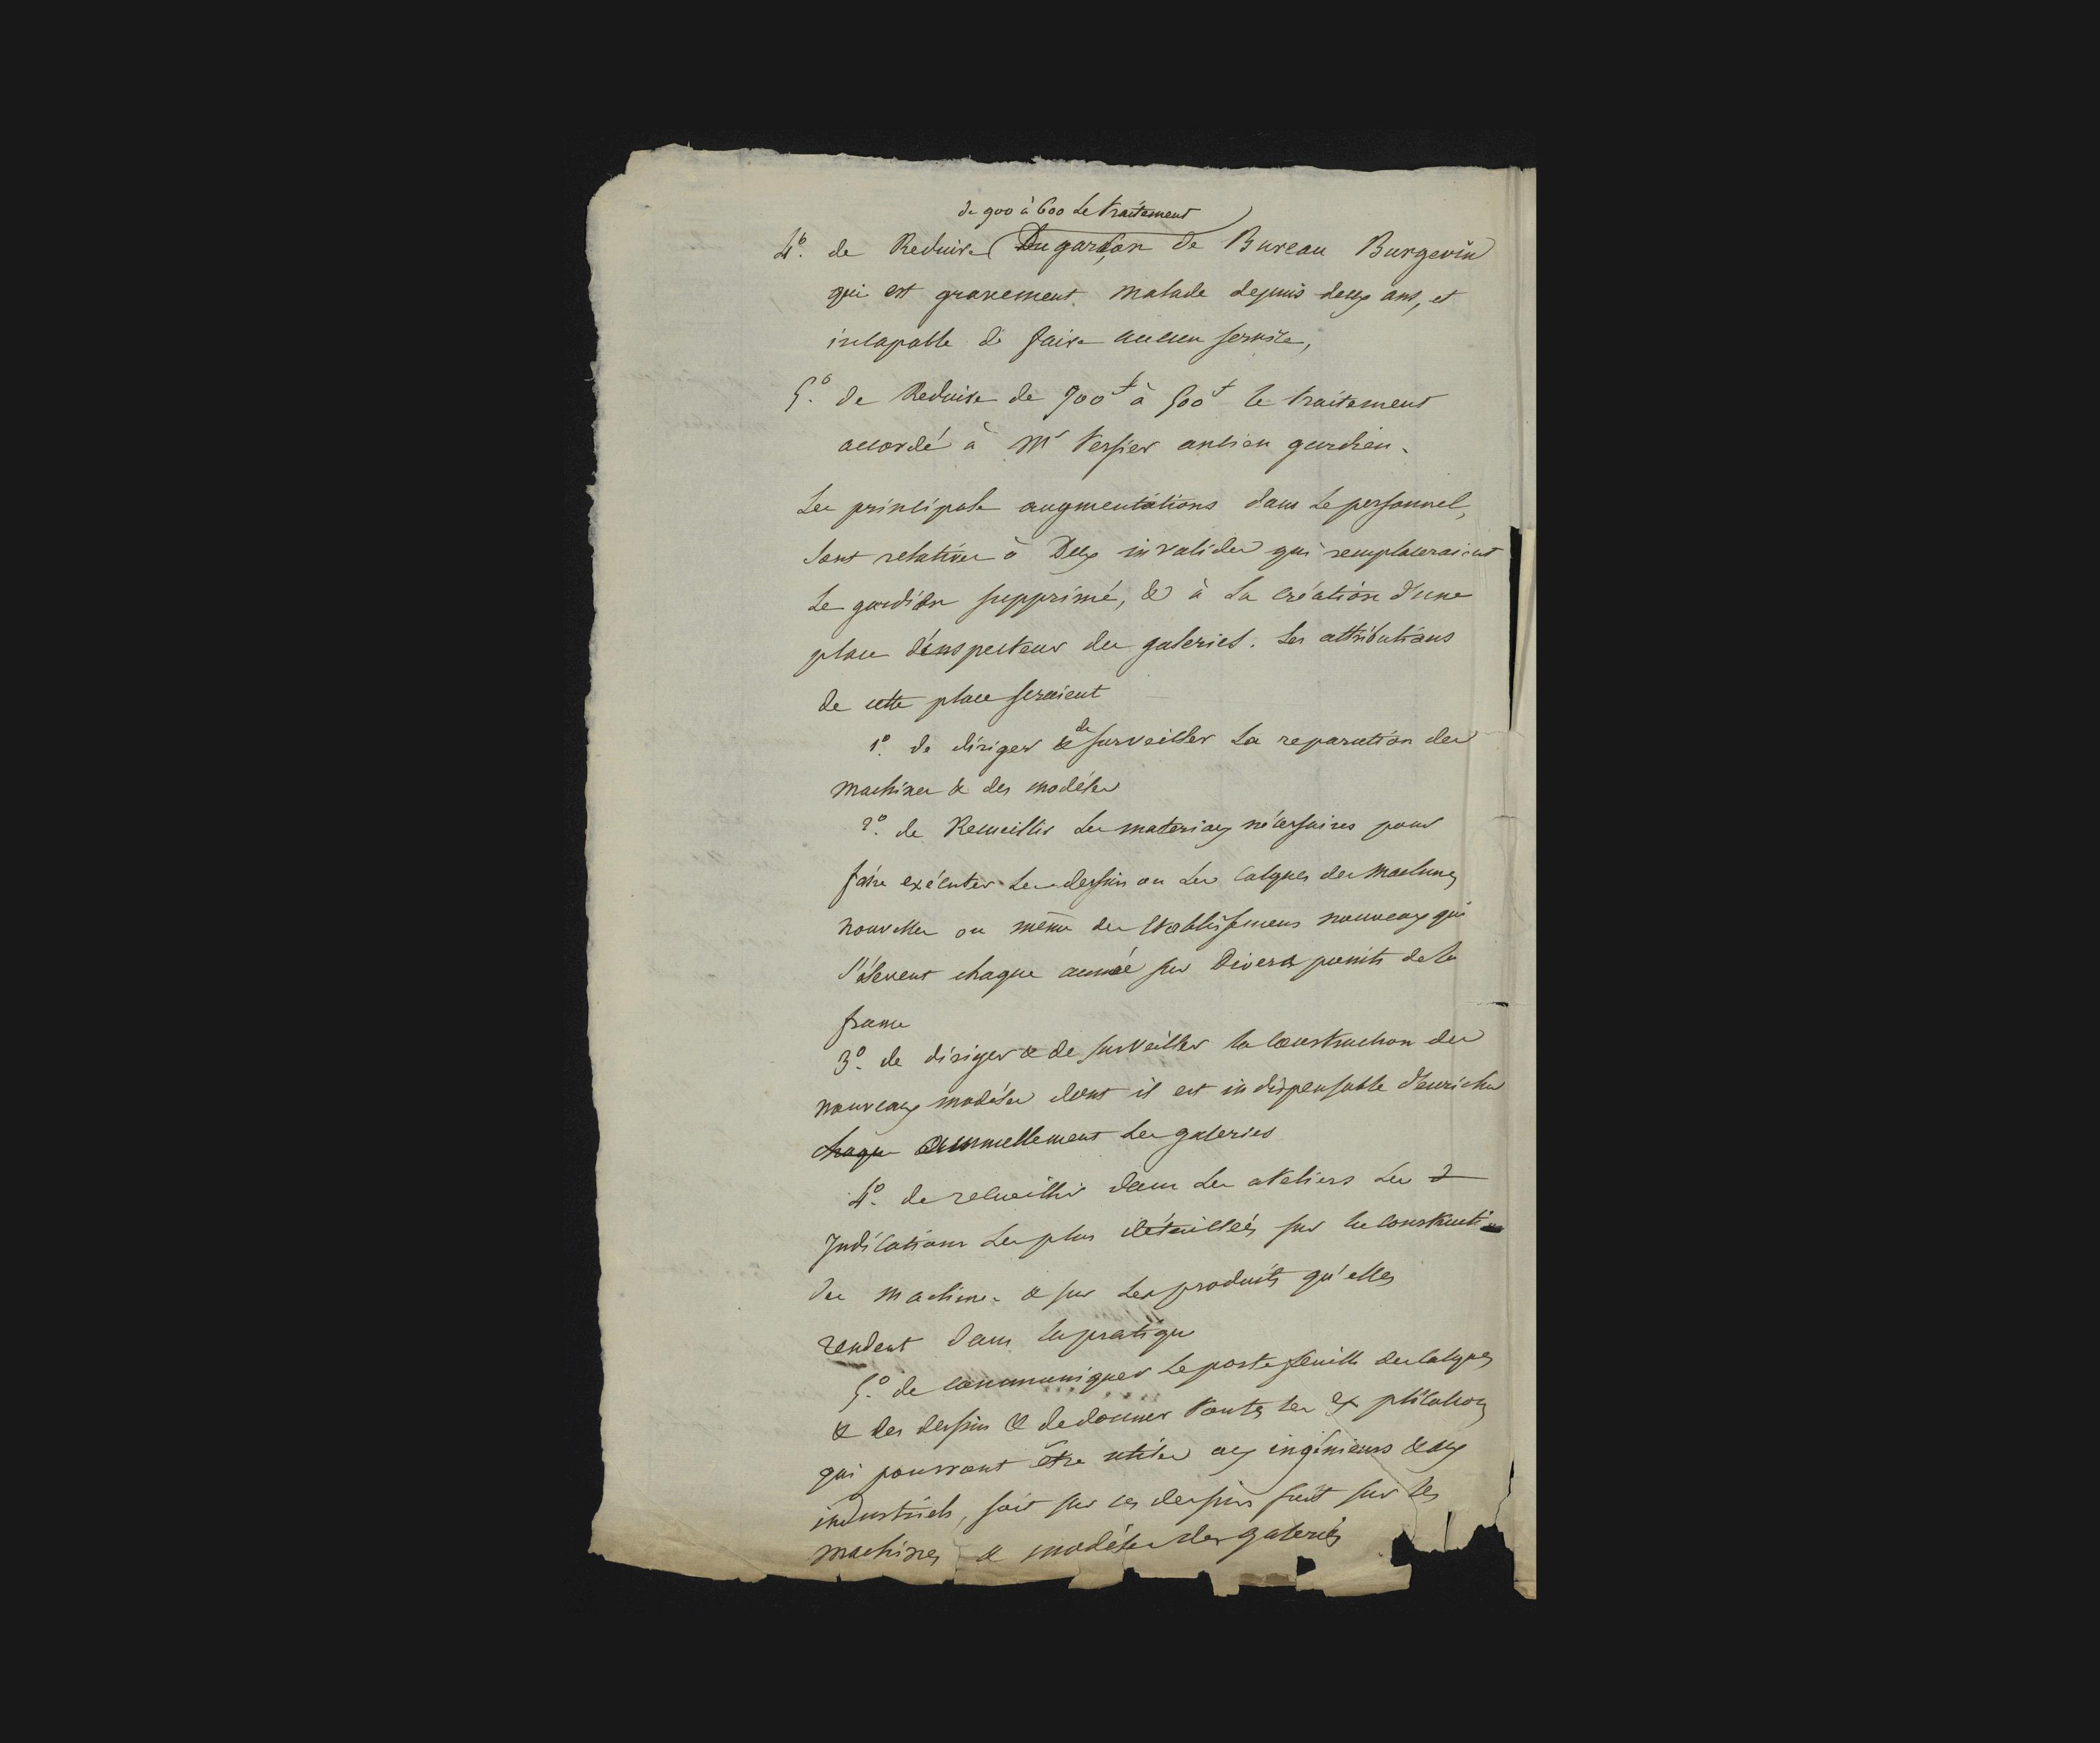 de 900 à 600 le traitement
4.° de Reduire Du garçon de Bureau Burgevin
qui est gravement malade depuis deux ans, et
incapable de faire aucun service,
5.° de Reduire de 700f à 500f le traitement
accordé à Mr Tessier ancien gardien.
Les principales augmentations dans le personnel,
sont relatives à Deux invalides qui remplaceraient
le gardien supprimé, & à la création d'une
place d'inspecteur des galeries. Les attributions
de cette place seraient
1.° de diriger & de surveiller la reparation des
machines & des modéles
2.° de Recueillir les materiaux nécessaires pour
faire exécuter les dessins ou les calques des machines
nouvelles ou même des etablissemens nouveaux qui
s'élevent chaque année sur Divers points de la
france
3.° de diriger & de surveiller la construction des
nouveaux modéles dont il est indispensable d'enrichir
chaque annuellement les galeries
4.° de recueillir dans les ateliers les
Indications les plus détaillées sur la construction
des machines & sur les produits qu'elles
rendent dans la pratique
5.° de communiquer le portefeuille des calques
& des dessins & de donner toutes les explications
qui pourront être utiles aux ingénieurs & aux
industriels, soit sur ces dessins soit sur les
machines & modéles des galeries